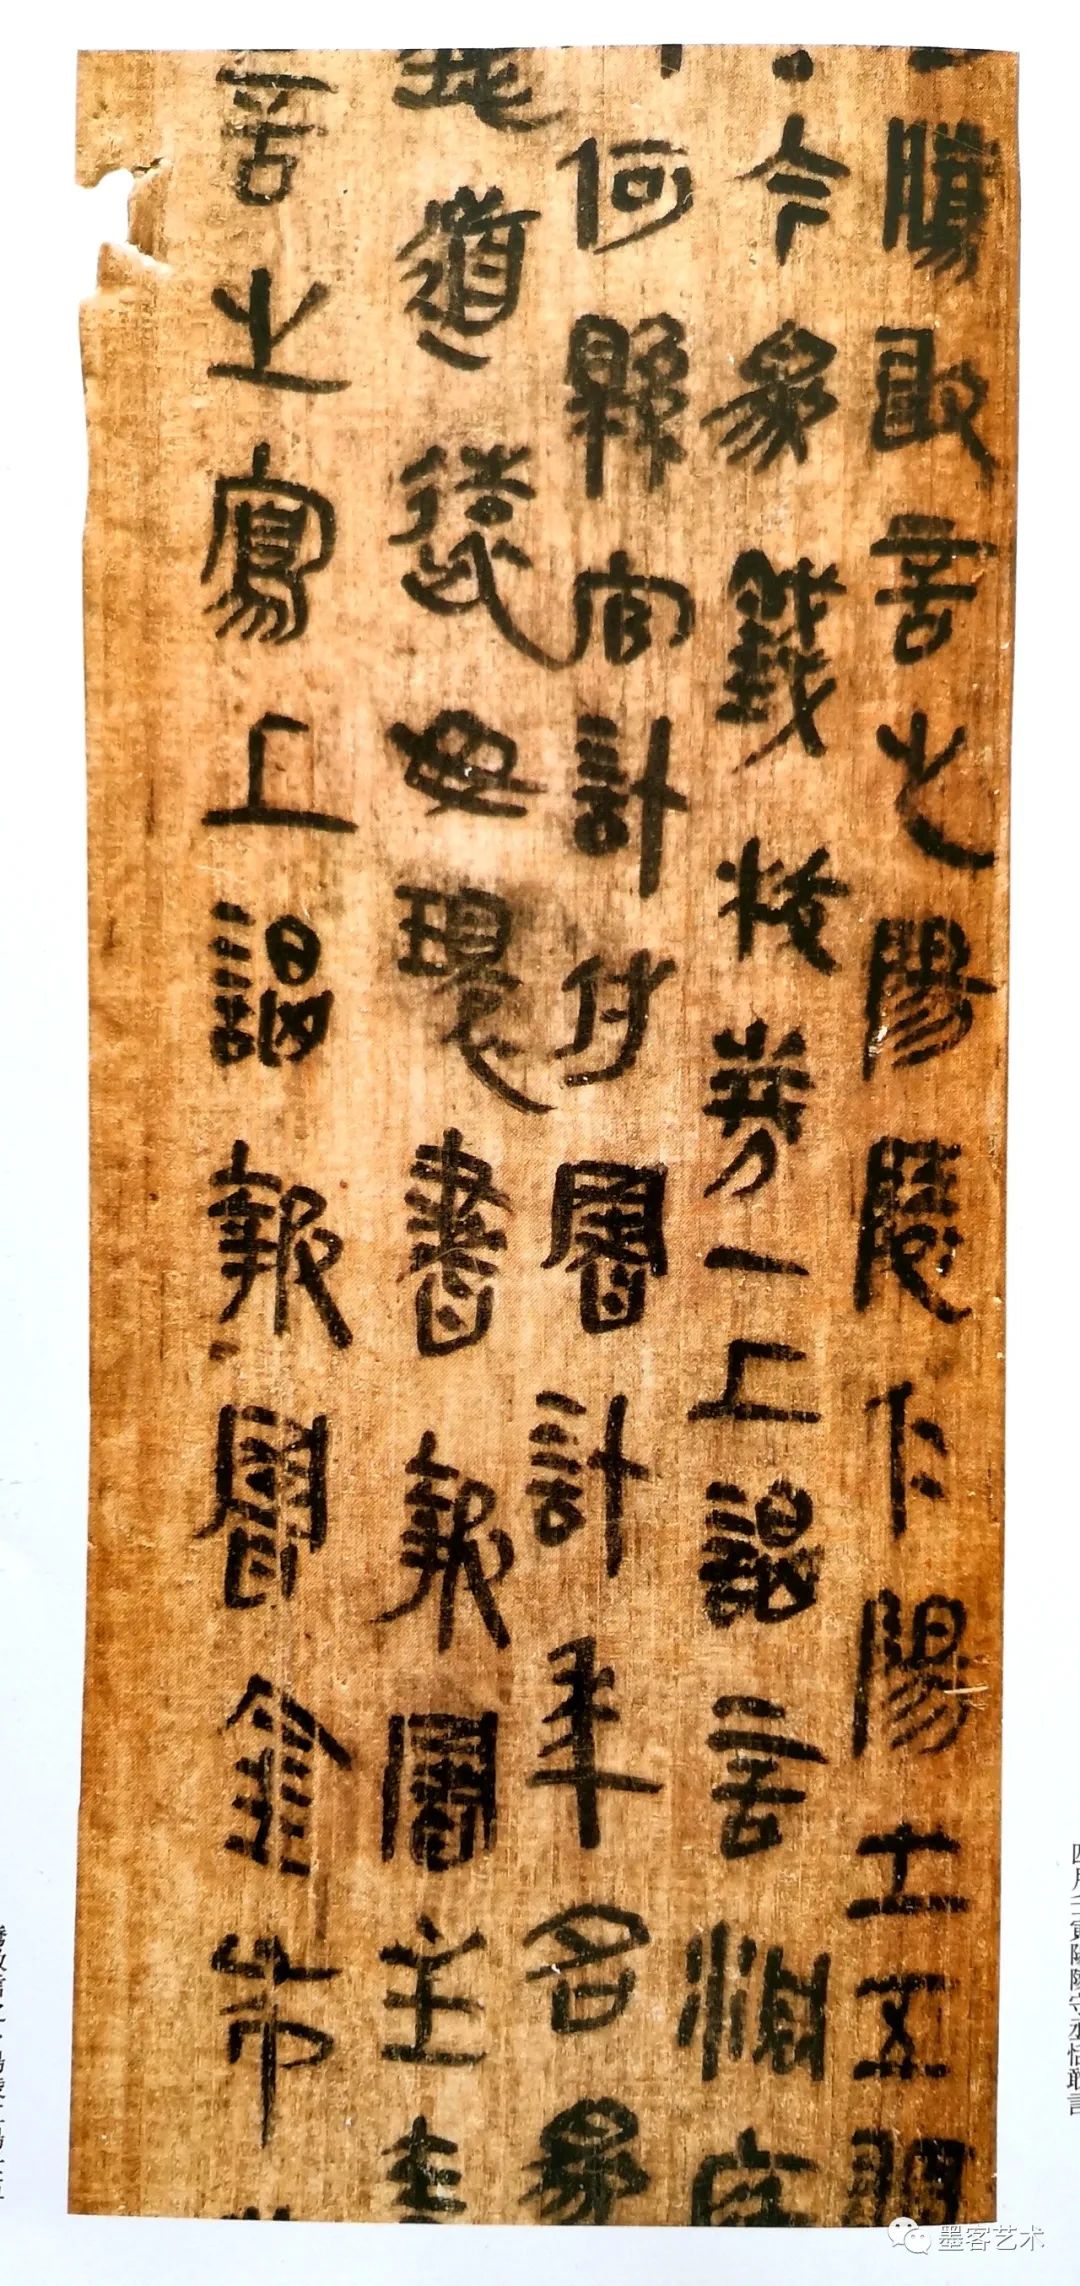 騰敢言之陽陵仁陽士五
·今為錢校券一上謁言洞庭
何縣官計付署計年名為
道遠毋環書報署主責
言之寫上謁報署金布
四月壬寅陽陵守丞恬敢言
墨客艺术